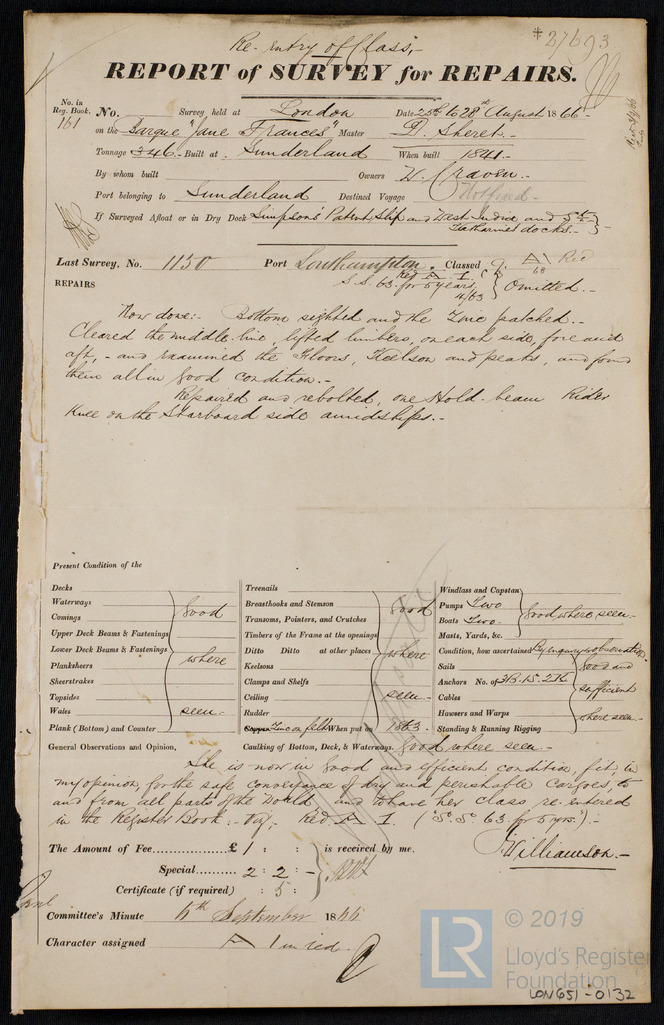 Re-entry of Class.-
*27693
REPORT of SURVEY for REPAIRS.
No. in Reg. Book.
161
No. Survey held at London Date 25th to 28th August 1866-
on the Barque "Jane Frances" Master D. Sheret.-
Tonnage 346- Built at Sunderland When built 1841.-
By whom built Owners W. Craven.-
Port belonging to Sunderland Destined Voyage Not fixed-
If Surveyed Afloat or in Dry Dock Simpsons' Patent Slip and West India and St. Katharines docks.-
Last Survey, No. 1130 Port Southampton. Classed A Red 68
Red A. 1.
S.S. 63. for 5 years 4/63 } Omitted.-
REPAIRS
Now done:- Bottom sighted and the Zinc patched.-
Cleared the middle-line, lifted limbers, on each side, fore and
aft,- and examined the Floors, Keelson and peaks, and found
them all in good condition.-
Repaired and rebolted, one Hold-beam Rider
Knee on the Starboard side amidships.-
Present Condition of the
Decks
Waterways
Comings
Upper Deck Beams & Fastenings
Lower Deck Beams & Fastenings
Planksheers
Sheerstrakes
Topsides
Wales
Plank (Bottom) and Counter
good where seen-
Treenails
Breasthooks and Stemson
Transoms, Pointers, and Crutches
Timbers of the Frame at the openings
Ditto Ditto at other places
Keelsons
Clamps and Shelfs
Ceiling
Rudder
good where seen-
Copper Zinc on felt When put on 1863-
Caulking of Bottom, Deck, & Waterways. good where seen-
Windlass and Capstan
Pumps Two
Boats Two-
Masts, Yards, &c.
good where seen-
Condition, how ascertained By inquiry & observation
Sails
Anchors No. of 3B. 1S. 2K
Cables
Hawsers and Warps
Standing & Running Rigging
good and sufficient where seen-
General Observations and Opinion,
She is now in good and efficient condition, fit, in
my opinion, for the safe conveyance of dry and perishable Cargoes, to
and from all parts of the World and to have her class re-entered
in the Register Book:- Viz:- Red A. 1. ("S.S. 63. for 5 yrs.").-
The Amount of Fee £ 1 : : is received by me.
Special 2 : 2 :-
Certificate (if required) : 5 :
Williamson.-
Committee's Minute 4th September 1866
Character assigned A 1 in red.
LR
© 2019
Lloyd's Register
Foundation
LON651-0132